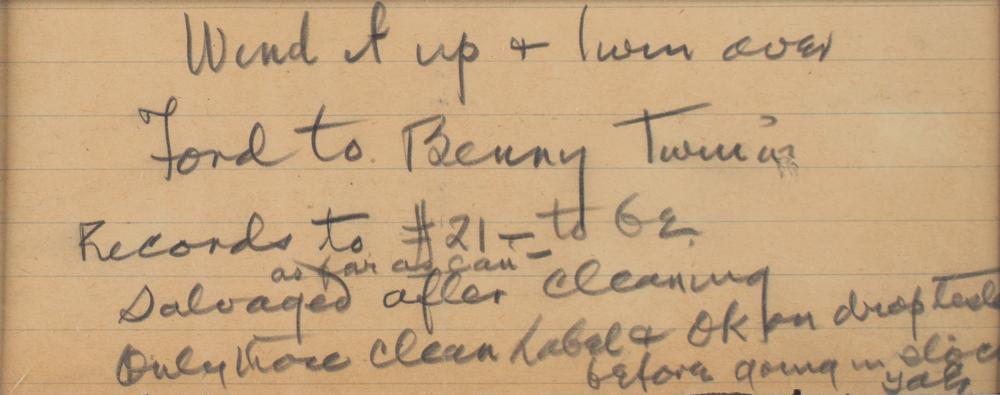 Wind it up + turn over
Ford to Benny Twin
Records to #21 – to be
as far as can
Salvaged after cleaning
Only those clean Label & OK on drop test
before going in disc